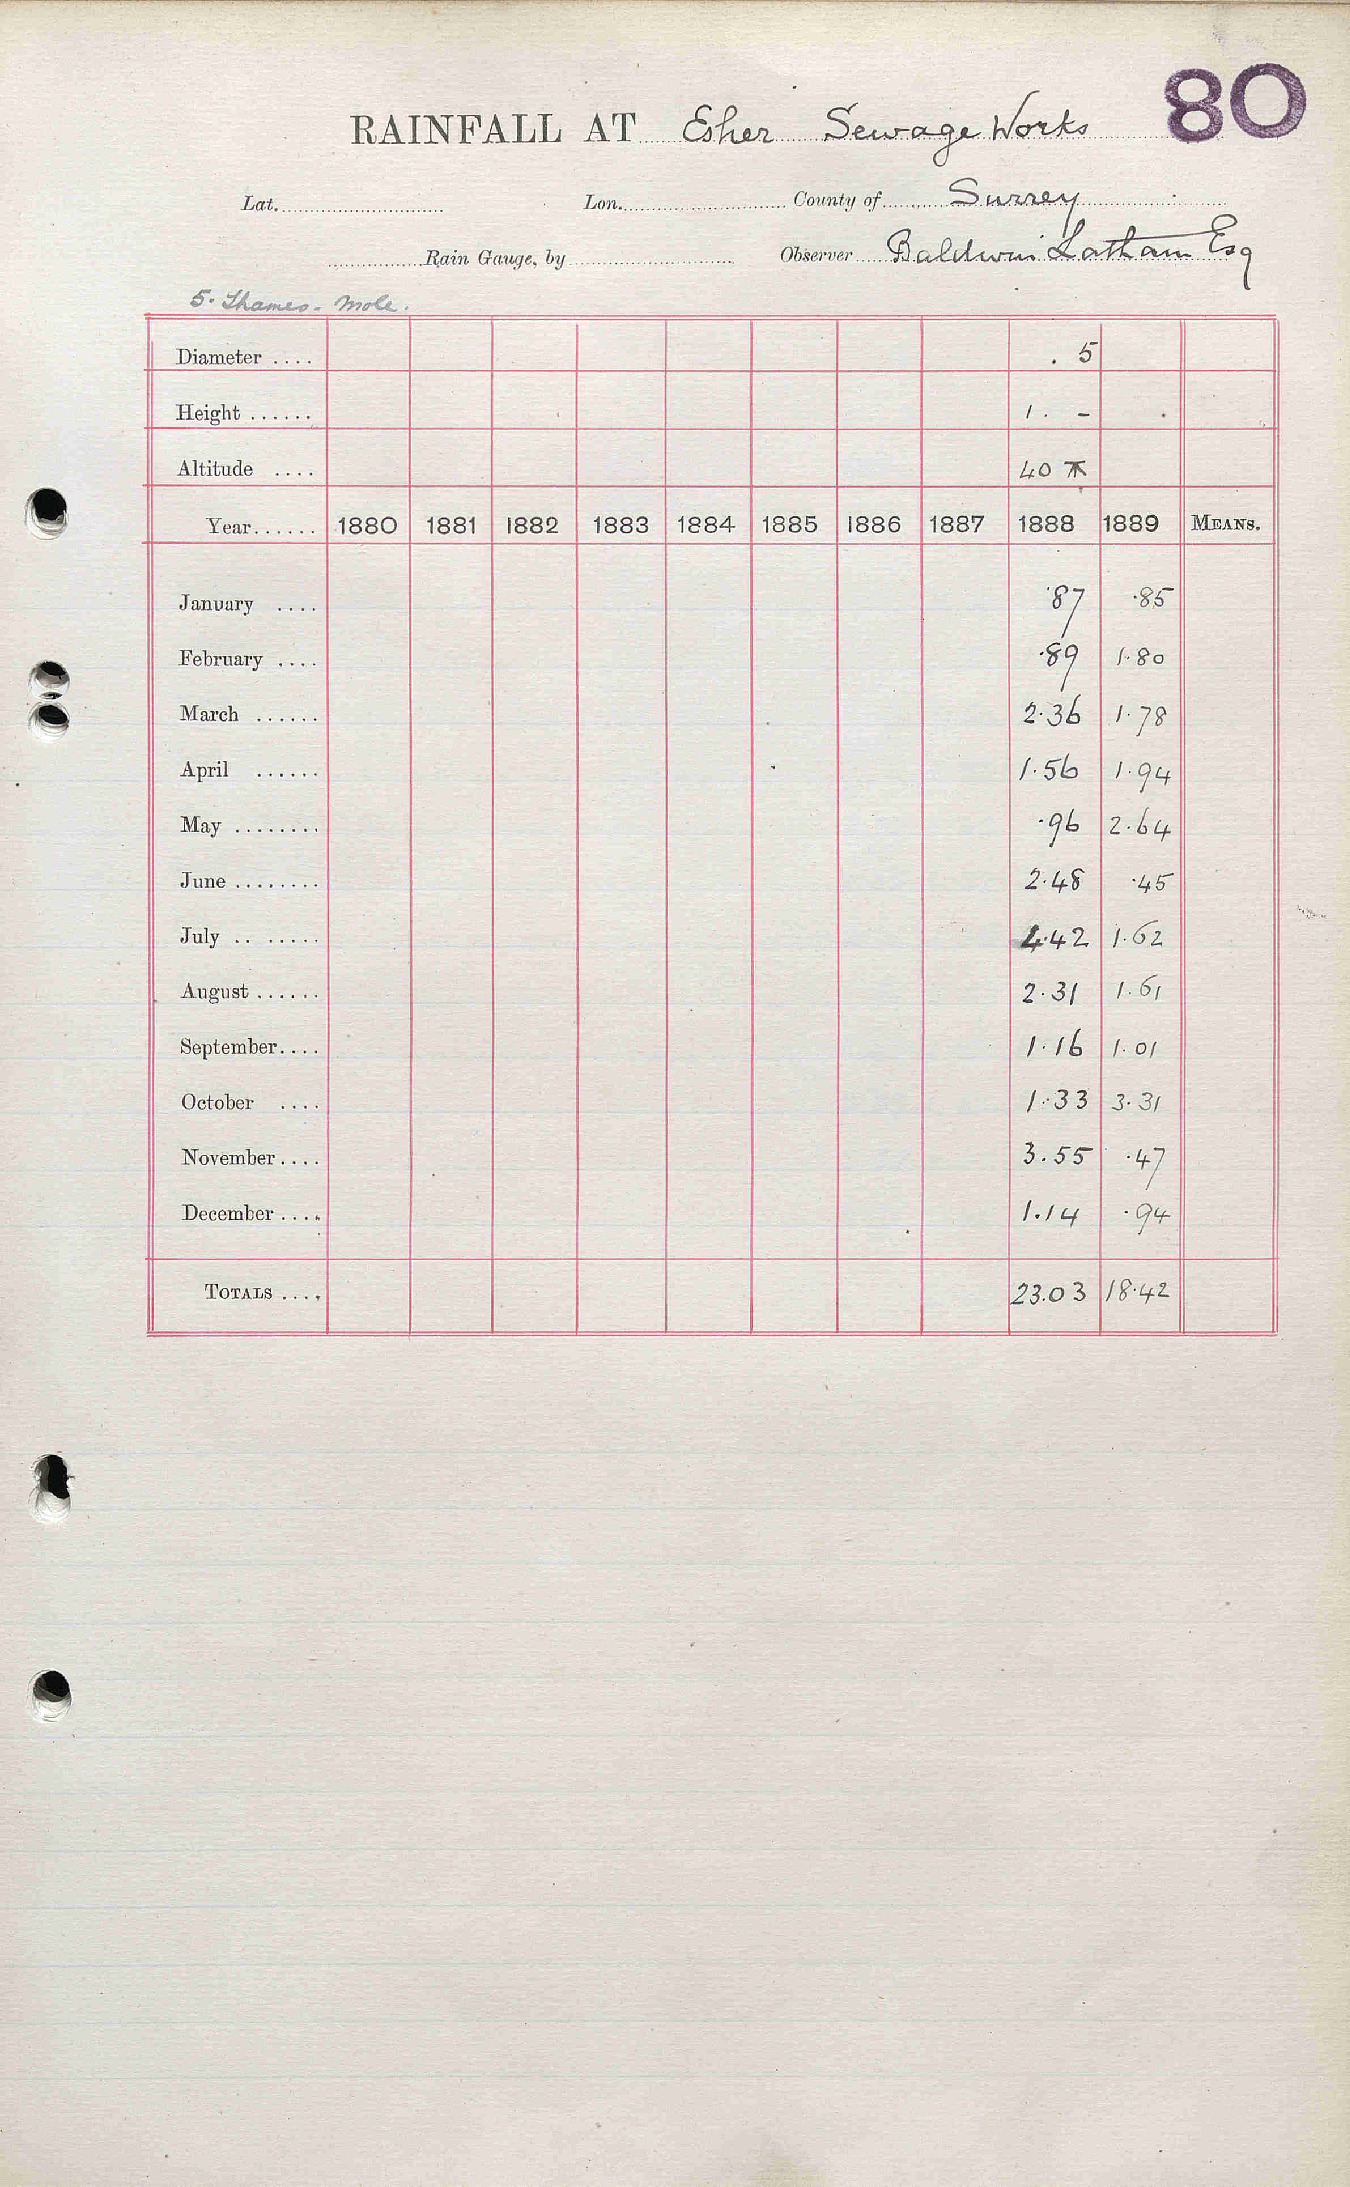 80
RAINFALL AT Esher Sewage Works
Lat. Lon. County of Surrey
Rain Gauge, by Observer Baldwin Latham Esq
5. Thames - Mole.
Diameter .... . 5
Height ...... 1. -
Altitude .... 40
Year...... 1880 1881 1882 1883 1884 1885 1886 1887 1888 1889 MEANS.
January .... .87 .85
February .... .89 1.80
March ...... 2.36 1.78
April ...... 1.56 1.94
May ........ .96 2.64
June ........ 2.48 .45
July .. ..... 4.42 1.62
August ...... 2.31 1.61
September.... 1.16 1.01
October .... 1.33 3.31
November.... 3.55 .47
December .... 1.14 .94
TOTALS .... 23.03 18.42